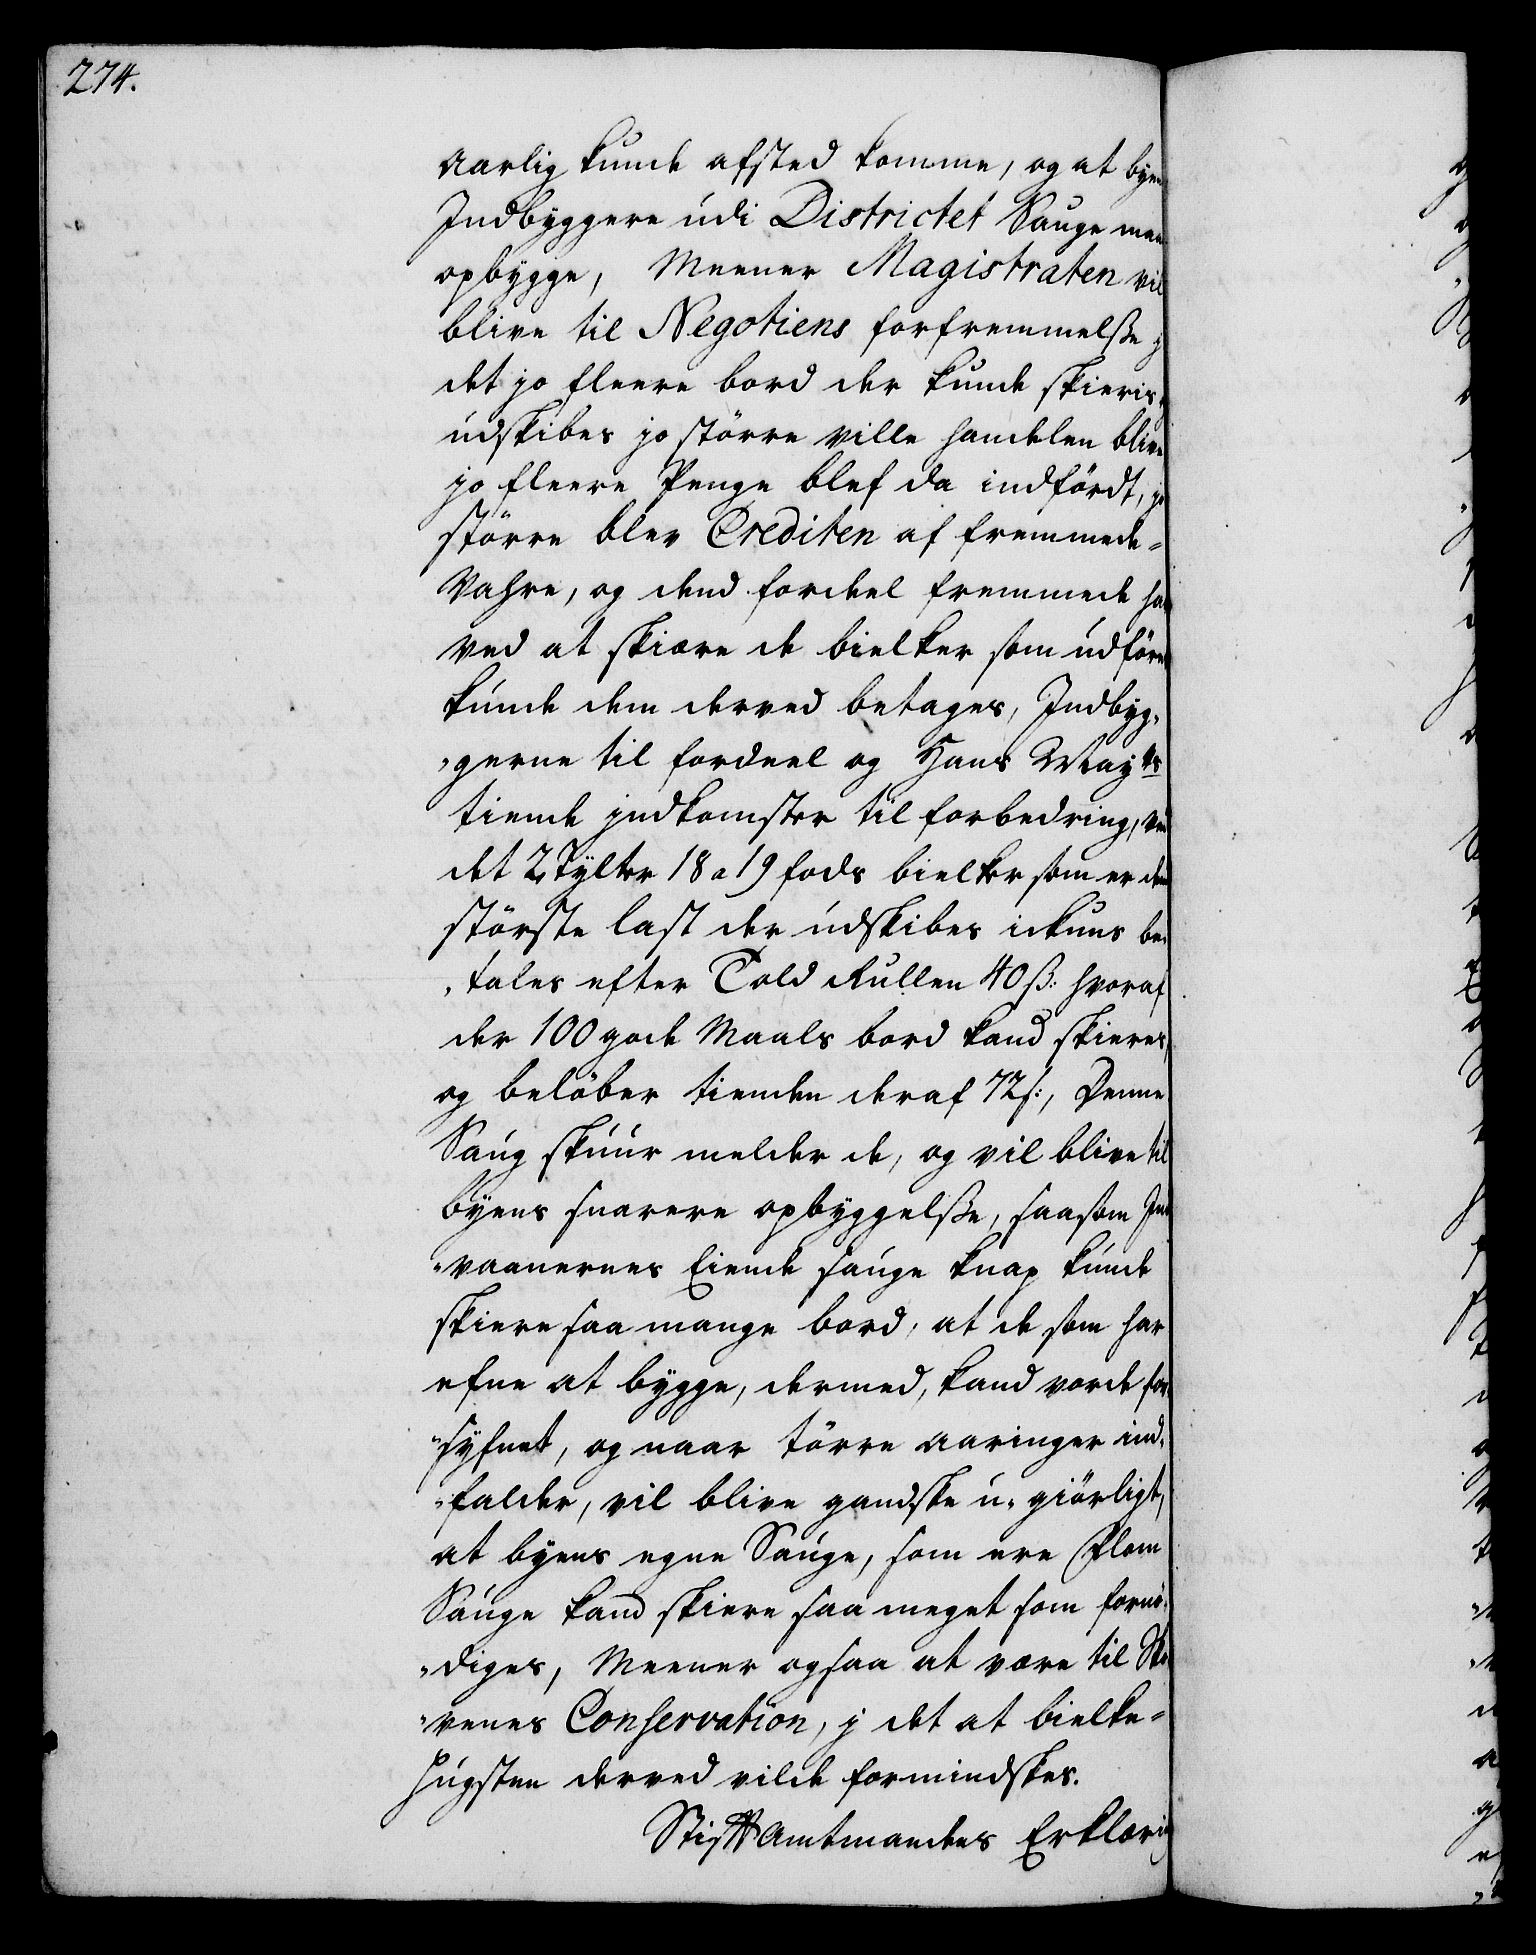 274.
aarlig kunde afsted komme, og at byens
Indbyggere udi Districtet Sauge maa
opbygge, Meener Magistraten vil
blive til Negotiens forfremmelße j
det jo fleere bord der kunde skieris og
udskibes jo större ville handelen blive
jo fleere Penge blef da indfördt, jo
större blev Crediten af fremmede-
Vahre, og dend fordeel fremmede har
ved at skiære de bielker som udföres
kunde dem derved betages, Indbyg-
-gerne til fordeel og Hans Mayts
tiende jndkomster til forbedring, ved
det 2 Tylter 18 a 19 fods bielker som er den
störste last der udskibes ickuns be-
-tales efter Told Rullen 40 ß: hvoraf
der 100 gode Maals bord kand skieres,
og belöber tienden deraf 72 s:, Denne
Saug skuur melder de, og vil blive til
byens snarere opbyggelße, saasom Ind-
-vaanernes Eiende sauge knap kunde
skiere saa mange bord, at de som har
efne at bygge, dermed, kand vorde for-
-syfnet, og naar törre aaringer ind-
-falder, vil blive gandske u-giörligt,
at byens egne Sauge, som ere Flom
Sauge kand skiere saa meget som fornö-
-diges, Meener ogsaa at være til Sko-
-venes Conservation, j det at bielke-
hugsten derved vilde formindskes.
Stifft Amtmandens Erklæring